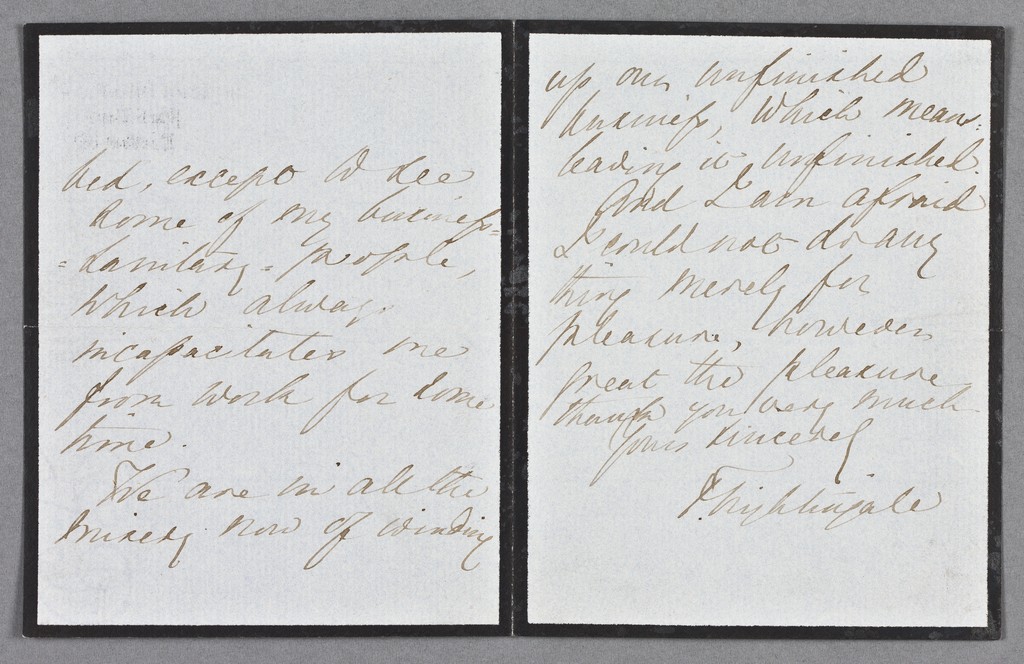 bed, except to see
some of my business=
=Sanitary-people,
which always
incapacitates me
from work for some
time.
We are in all the
misery now of winding
up our unfinished
business, which mean:
leaving it unfinished.
And I am afraid
I could not do any
thing merely for
pleasure, however
great the pleasure
thank you very much
Yours sincerely
F. Nightingale